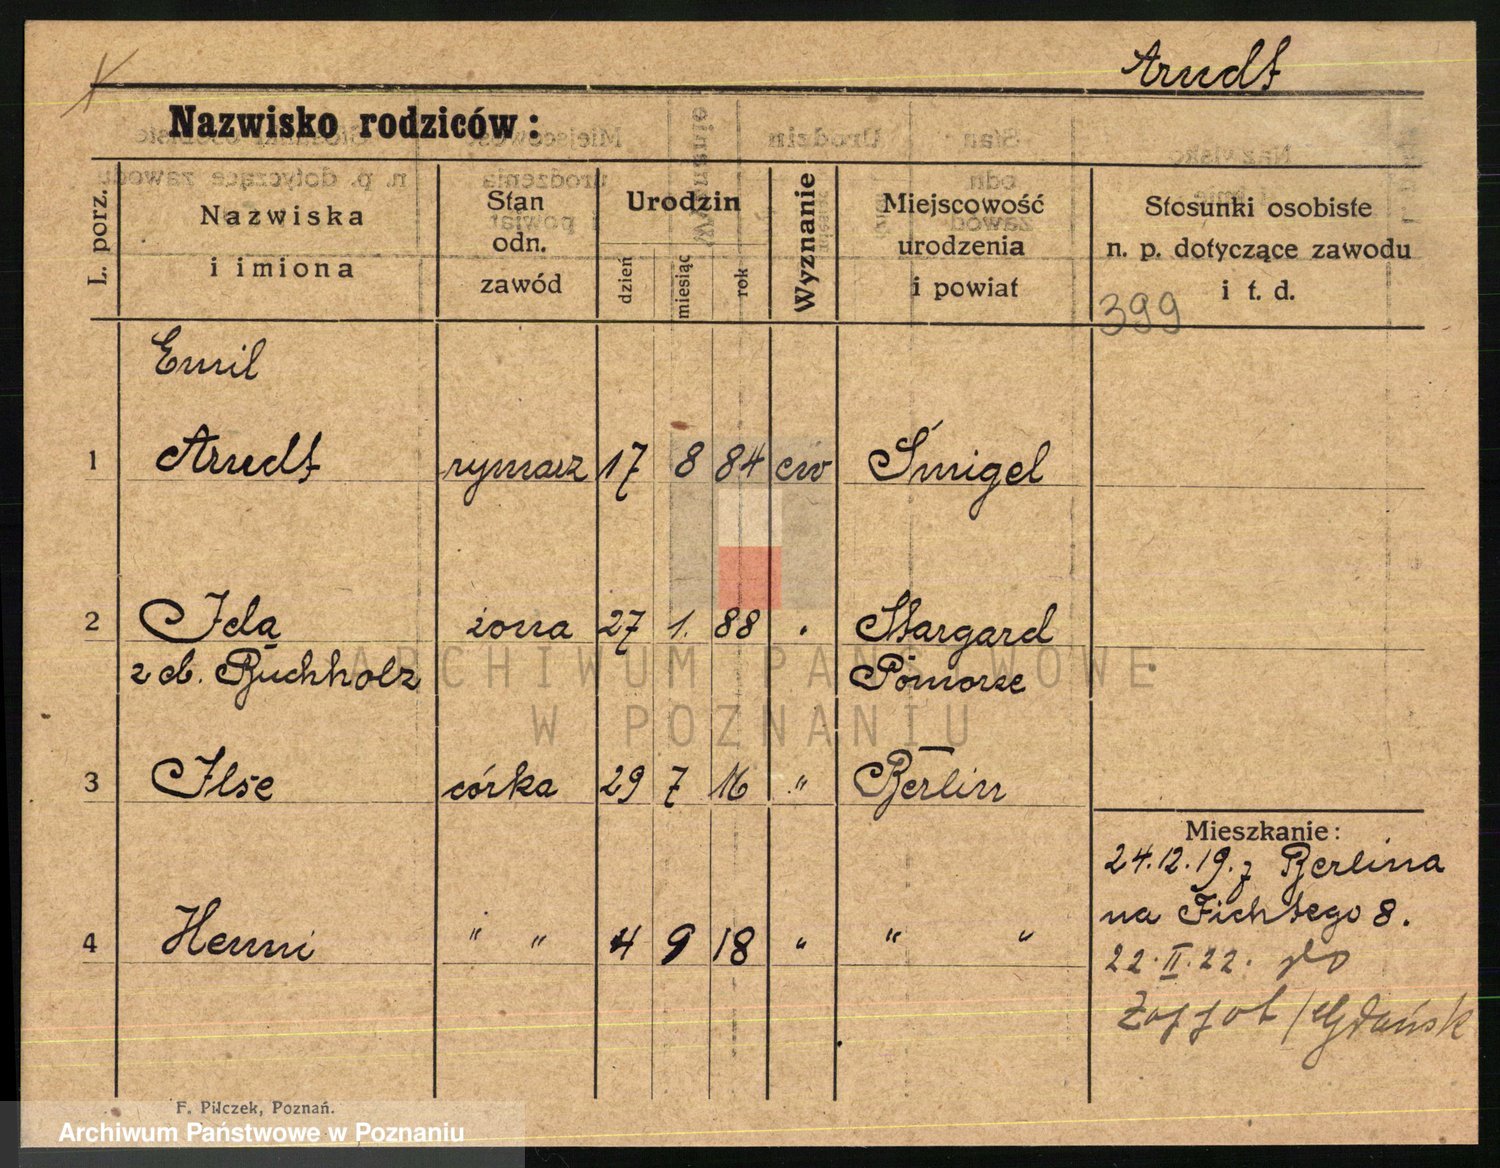 Arndt
Nazwisko rodziców:
L. porz.
Nazwiska
i imiona
Stan
odn.
zawód
Urodzin
dzień
miesiąc
rok
Wyznanie
Miejscowość
urodzenia
i powiat
Stosunki osobiste
n. p. dotyczące zawodu
i t. d.
399
Emil
1 Arndt rymarz 17 8 84 ew Śmigel
2 Ida żona 27 1. 88 " Margard
z d. Buchholz Pomorze
3 Ilse córka 29 7 16 " Berlin
Mieszkanie:
24.12.19. z Berlina
na Fichtego 8.
4 Henni " " 4 9 18 " " "
22.II.22. do
Zoppot / Gdańsk
F. Pilczek, Poznań.
ARCHIWUM PAŃSTWOWE
W POZNANIU
Archiwum Państwowe w Poznaniu